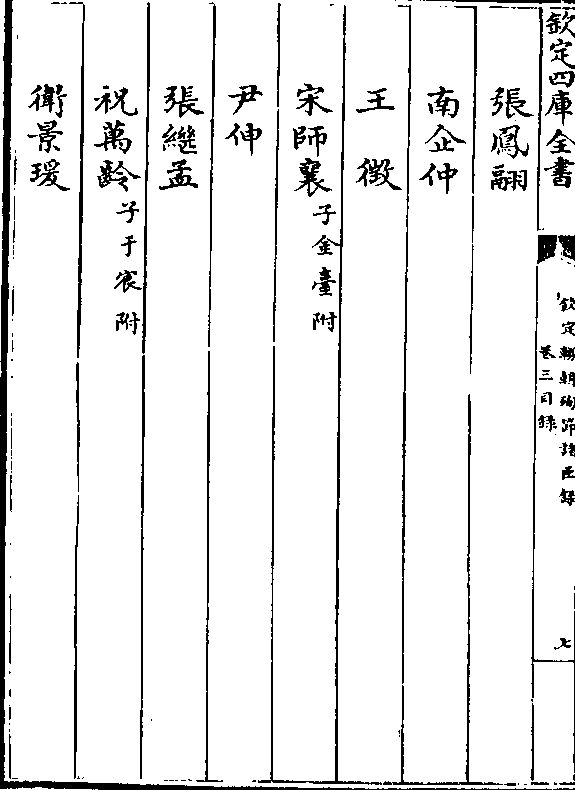 欽定四庫全書
欽定勝朝殉節諸臣錄
卷三目錄
七
張鳳翮
南企仲
王徵
宋師襄子金臺附
尹伸
張繼孟
祝萬齡子于宸附
衛景瑗